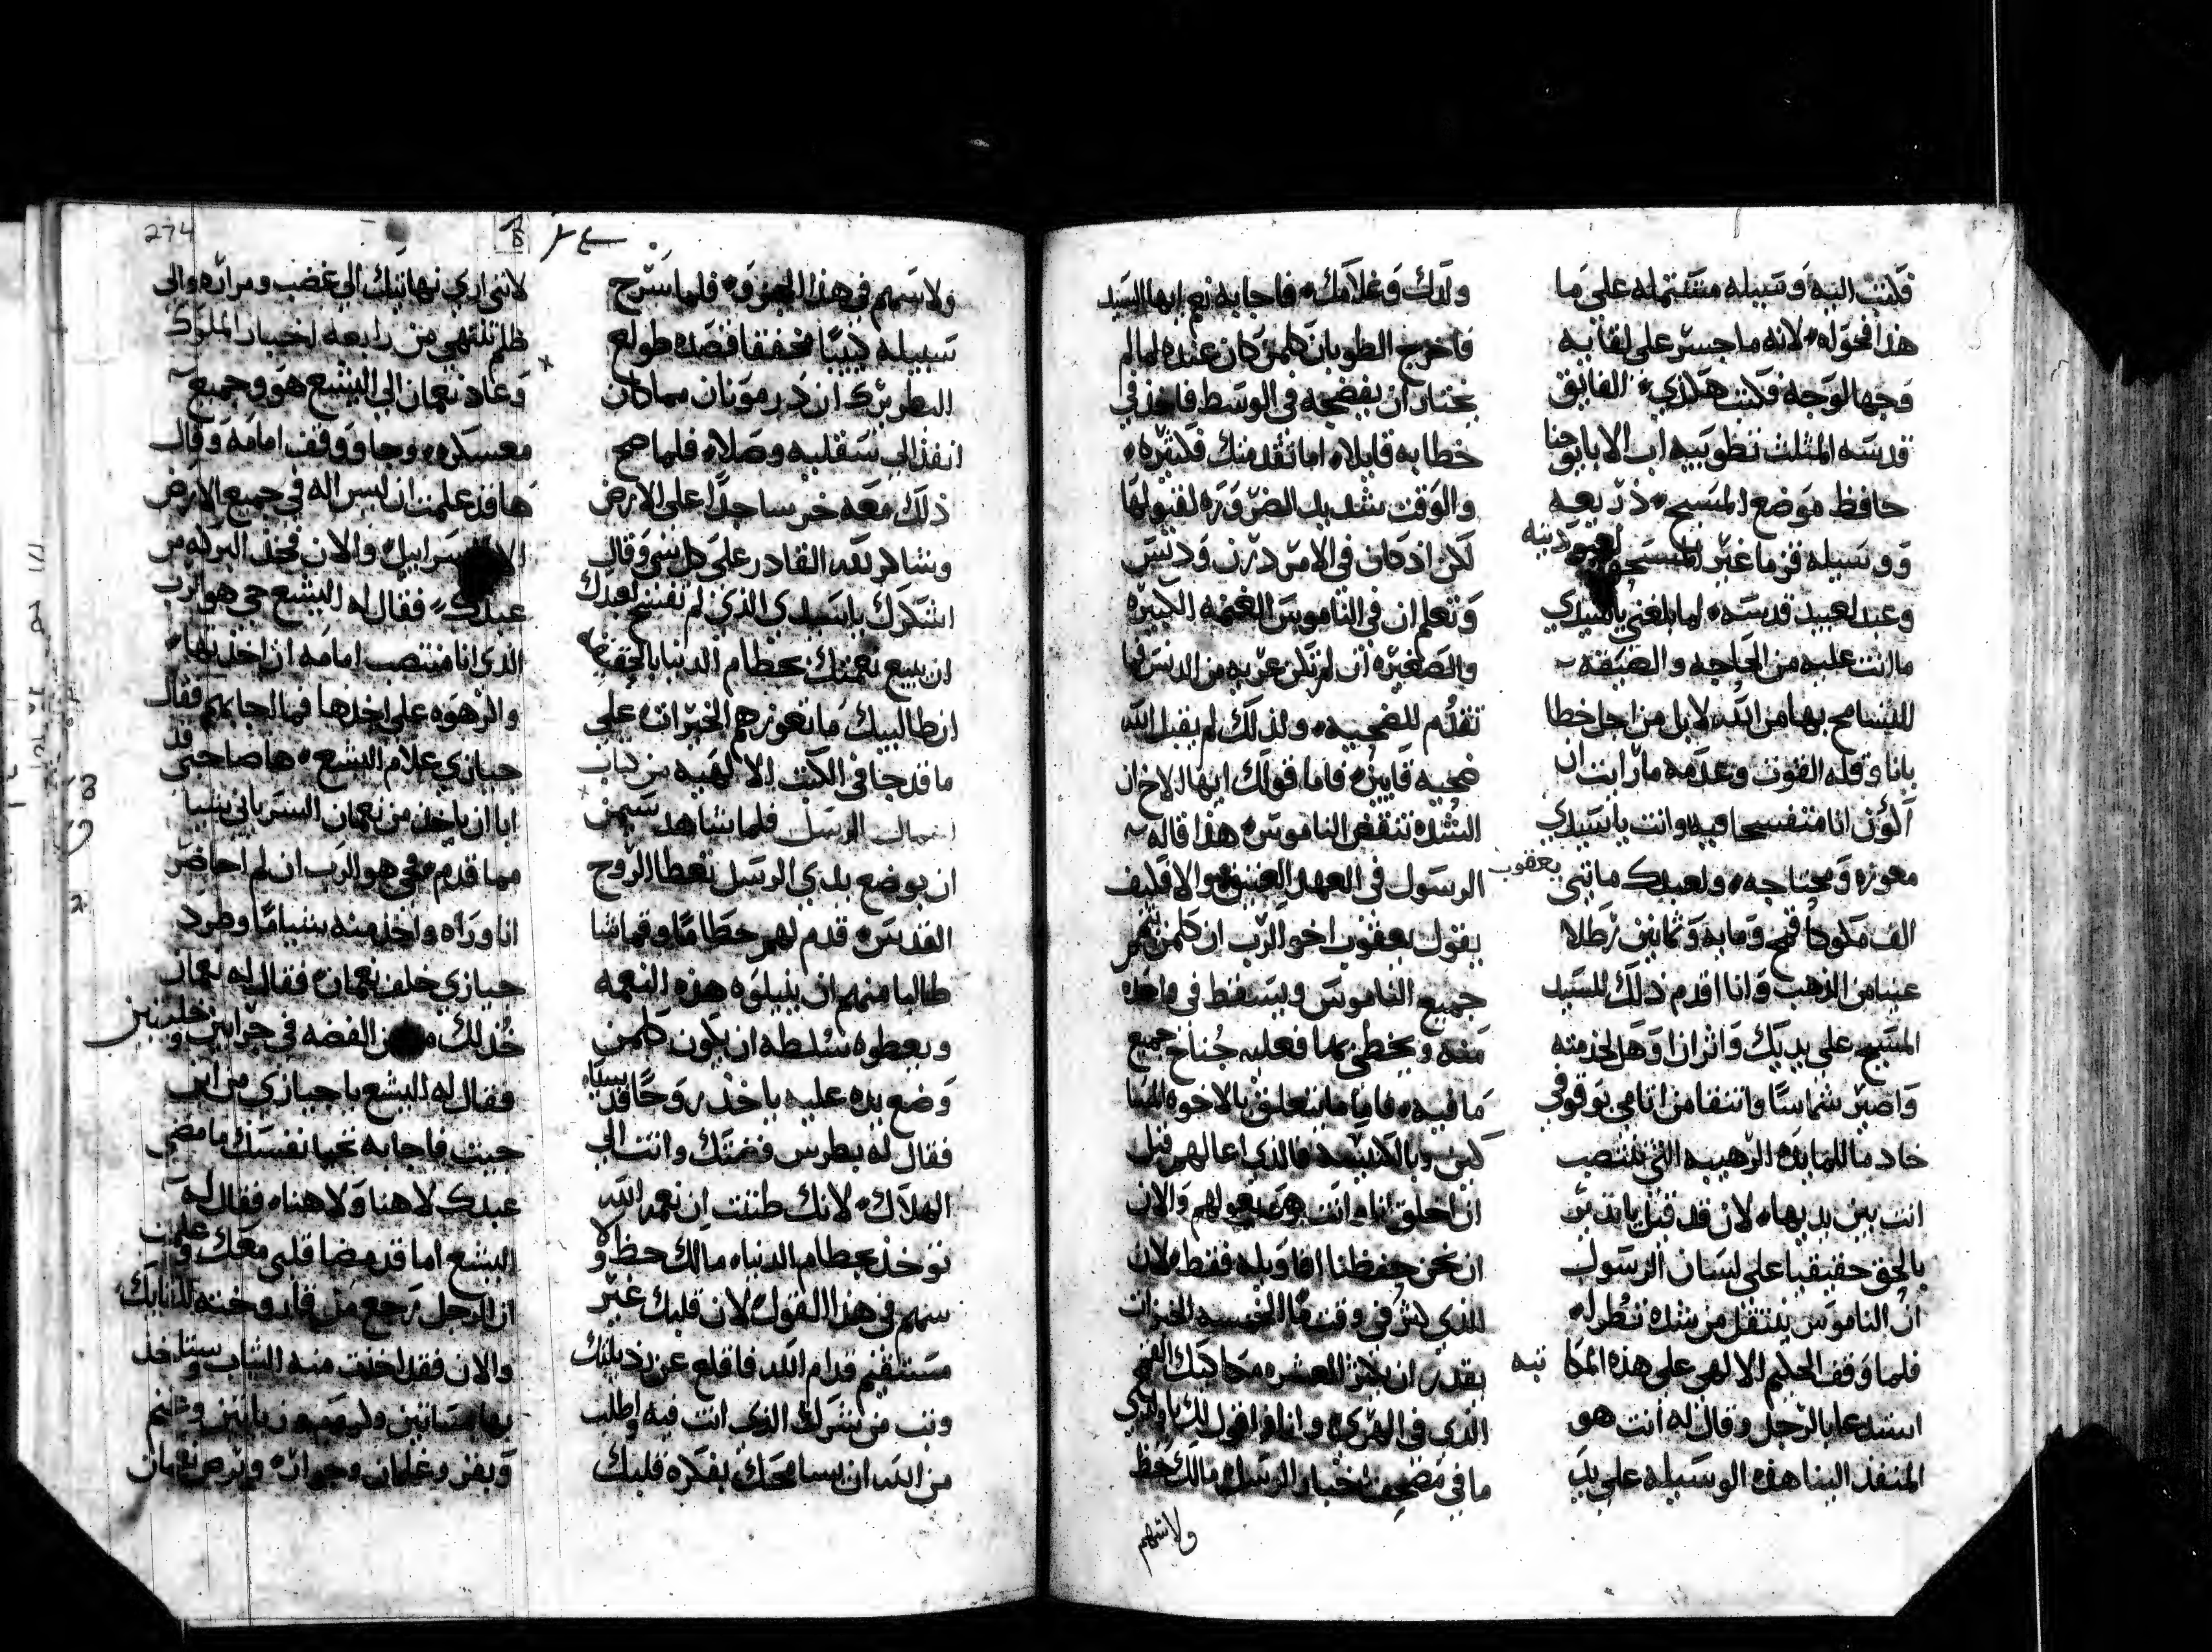 فكتب اليه وسيله مشتمله على ما
هذا فحواه لانه ما جسر على لقايه
وجها لوجه فكتب هكذي الفايق
قدسه المثلث تطويبه اب الابا يوحنا
حافظ موضع المسيح ذريعه
ووسيله قزما غير المستحق لعبوديته
وعبد لعبيد قدسه لما بلغني يا سيدي
ما انت عليه من الحاجه والضيقه
للتسامح بها من الله لا بل من اجل خطا
يانا وقله القوت وعدمه ما رايت ان
اكون انا متفسحا فيه وانت يا سيدي
معوزه ومحتاجه ولعبدك مايتي
الف مكوكا قمح ومايه وثمانين رطلا
عينا من الذهب وانا اقدم ذلك للسيد
المسيح على يديك واثر ان اوهل لخدمته
واصير شماسا واتنقا من اثامي بوقوفي
خادما للمايده الرهيبه التي تنتصب
انت بين يديها لان قد قيل يا مدبر
بالحق حقيقيا على لسان الرسول
ان الناموس ينتقل من شده تضطر له
فلما وقف الحكيم الالهي على هذه المكاتبه
استدعا بالرجل وقال له انت هو
المنفذ الينا هذه الوسيله على يد
ولدك وغلامك فاجابه نعم ايها السيد
فاخرج الطوبان كلمن كان عنده لما لم
يختار ان يفضحه في الوسط فاخذ في
خطابه قايلا اما تقدمتك فكثيره
والوقت شديد الضروره لقبولها
لكن اذ كان في الامر درن ودنس
وتعلم ان في الناموس الغنمه الكبيره
والصغيره ان لم تكن عريه من الدنس لما
تقدم للضحيه ولذلك لم يقبل الله
ضحيه قايين فاما قولك ايها الاخ ان
الشده تنقض الناموس هذا قاله
الرسول في العهد العتيق والا فكيف
يقول يعقوب اخو الرب ان كلمن تمم
جميع الناموس ويسقط في واحده
منه ويخطي بها فعليه جناح جميع
ما فيه فاما ما يتعلق بالاخوه المسا
كين وبالكنيسه فالذي اعالهم قبل
ان اخلق انا وانت هو يعولهم والان
ان نحن حفظنا اقاويله فقط لان
للذي كثر في وقت ما الخمسه الخبزات
يقدر ان يكثر العشره مكاكيك القمح
الذي في الهري وانا فاقول لك يا ولدي
ما في مصحف اخبار الرسل ما لك حظ
ولا سهم
ولا سهم في هذا الجزو فلما سرح
سبيله كييبا مخفقا قصده طولع
البطريرك ان درمونان مما كان
انفذ الى سقلبيه وصلا فلما صح
ذلك معه خر ساجدا على الارض
وشاكر لله القادر على كل شي وقال
اشكرك يا سيدي الذي لم تفسح لعبدك
ان يبيع نعمتك بحطام الدنيا بالحقيقه
ان طالبيك ما تعوزهم الخيرات على
ما قد جا في الكتب الالهيه من كتاب
اعمال الرسل فلما شاهد سيمن
ان بوضع يدي الرسل تعطا الروح
القدس قدم لهم حطاما وقماشا
طالبا منهم ان ينيلوه هذه النعمه
ويعطوه سلطه ان يكون كلمن
وضع يده عليه ياخذ روحا قدسيا
فقال له بطرس فضتك وانت الى
الهلاك لانك ظننت ان نعمه الله
توخذ بحطام الدنيا ما لك حظ ولا
سهم في هذا القول لان قلبك غير
مستقيم قدام الله فاقلع عن رذيلتك
وتب من شرك الذي انت فيه واطلب
من الله ان يسامحك بفكره قلبك
لانني اري نهايتك الى غضب ومراره والى
ظلم تنتهي من رابعه اخبار الملوك
وعاد نعمان الى اليشع هو وجميع
معسكره وجا ووقف امامه وقال
ها قد علمت ان ليس اله في جميع الارض
الا اسراييل والان فخذ البركه من
عبدك فقال له اليشع حي هو الرب
الذي انا منتصب امامه ان اخذتها
والزهوه على اخذها فما اجابهم فقال
جيازي غلام اليشع ها صاحبي قد
ابا ان ياخذ من نعمان السرياني شيا
مما قدم فحي هو الرب ان لم احاضر
انا وراه واخذ منه شيا ما وطرد
جيازي خلف نعمان فقال له نعمان
خذ لك من الفضه في جرابين وحلتين
فقال له اليشع يا جيازي من اين
جيت فاجابه تحيا نفسك ما مضي
عبدك لا هنا ولا هنا فقال له
اليشع اما قد مضا قلبي معك وعلمت
ان الرجل رجع من قدوخته للقايك
والان فقد اخذت منه الثياب وستاخذ
بها بساتين وكروم وزيتاتين وغنم
وبقر وغلمان وجوار وبرص نعمان